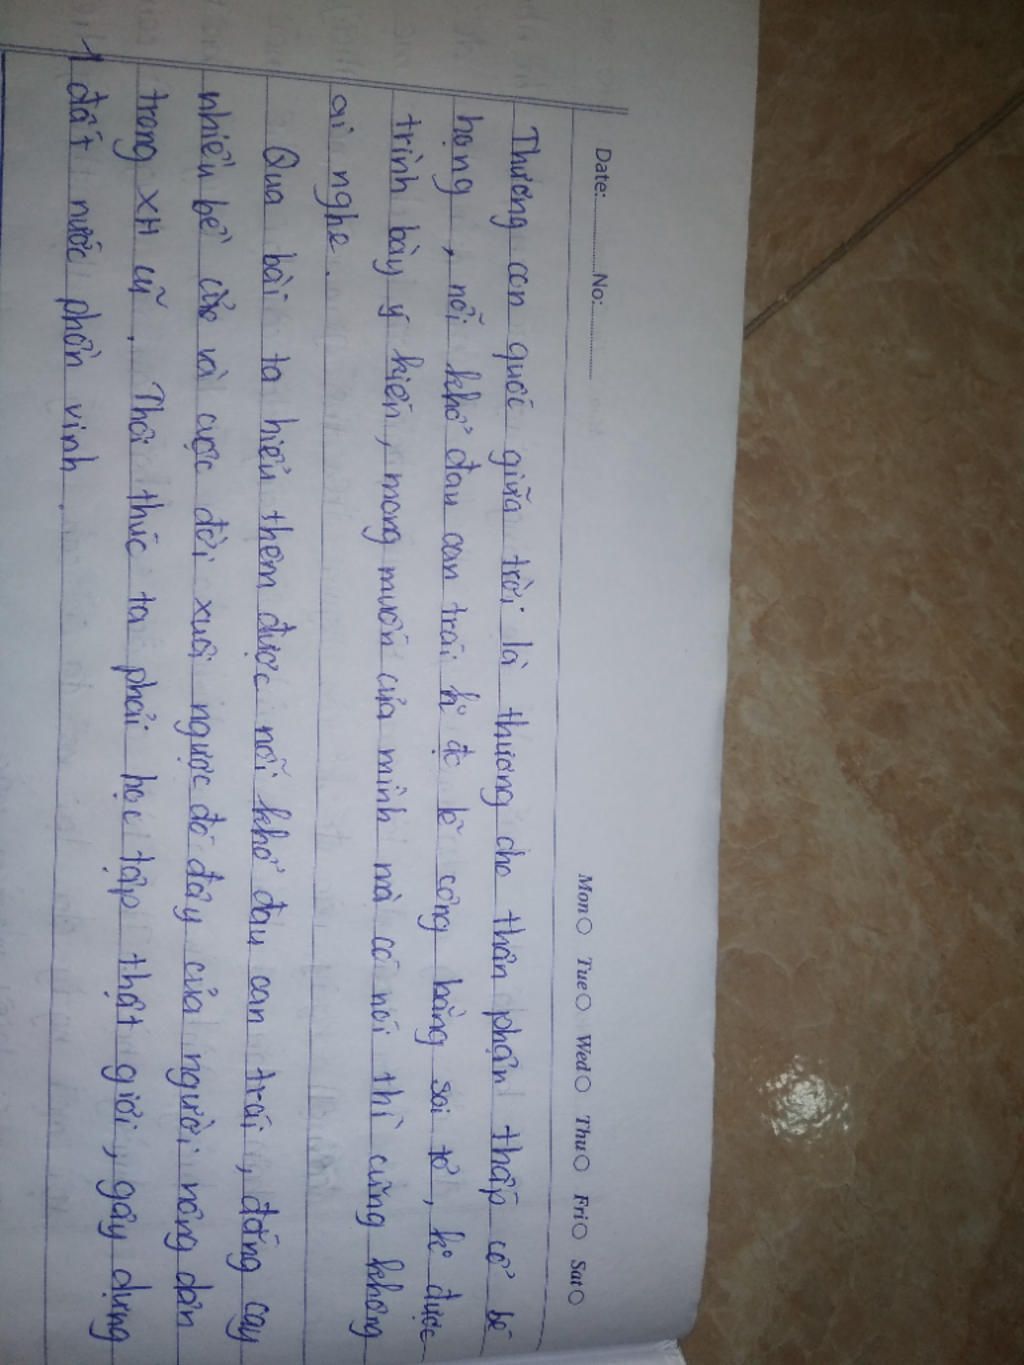 Date: No:
Mon Tue Wed Thu Fri Sat
Thương con quốc giữa trời là thương cho thân phận thấp cổ bé
họng, nỗi khổ đau oan trái k° đc lẽ công bằng soi tỏ, k° được
trình bày ý kiến, mong muốn của mình mà có nói thì cũng không
ai nghe.
Qua bài ta hiểu thêm được nỗi khổ đau oan trái, đắng cay
nhiều bề của và cuộc đời xuôi ngược đó đây của người nông dân
trong XH cũ. Thôi thúc ta phải học tập thật giỏi, gây dựng
1 đất nước phồn vinh.